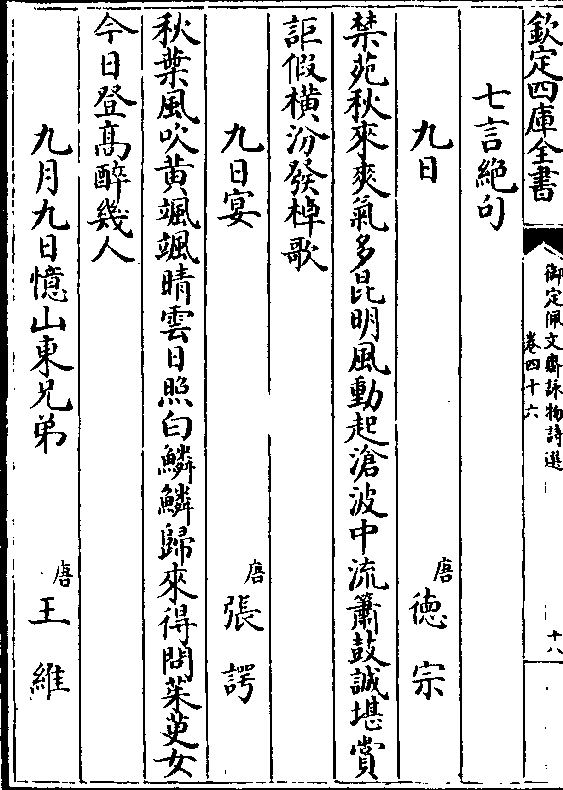 欽定四庫全書
御定佩文齋詠物詩選
卷四十六
十八
七言絶句
九日
唐
德宗
禁苑秋來爽氣多昆明風動起滄波中流簫鼓誠堪賞
詎假横汾發棹歌
九日宴
唐
張諤
秋葉風吹黄颯颯晴雲日照白鱗鱗歸來得問茱萸女
今日登髙醉幾人
九月九日憶山東兄弟
唐
王維